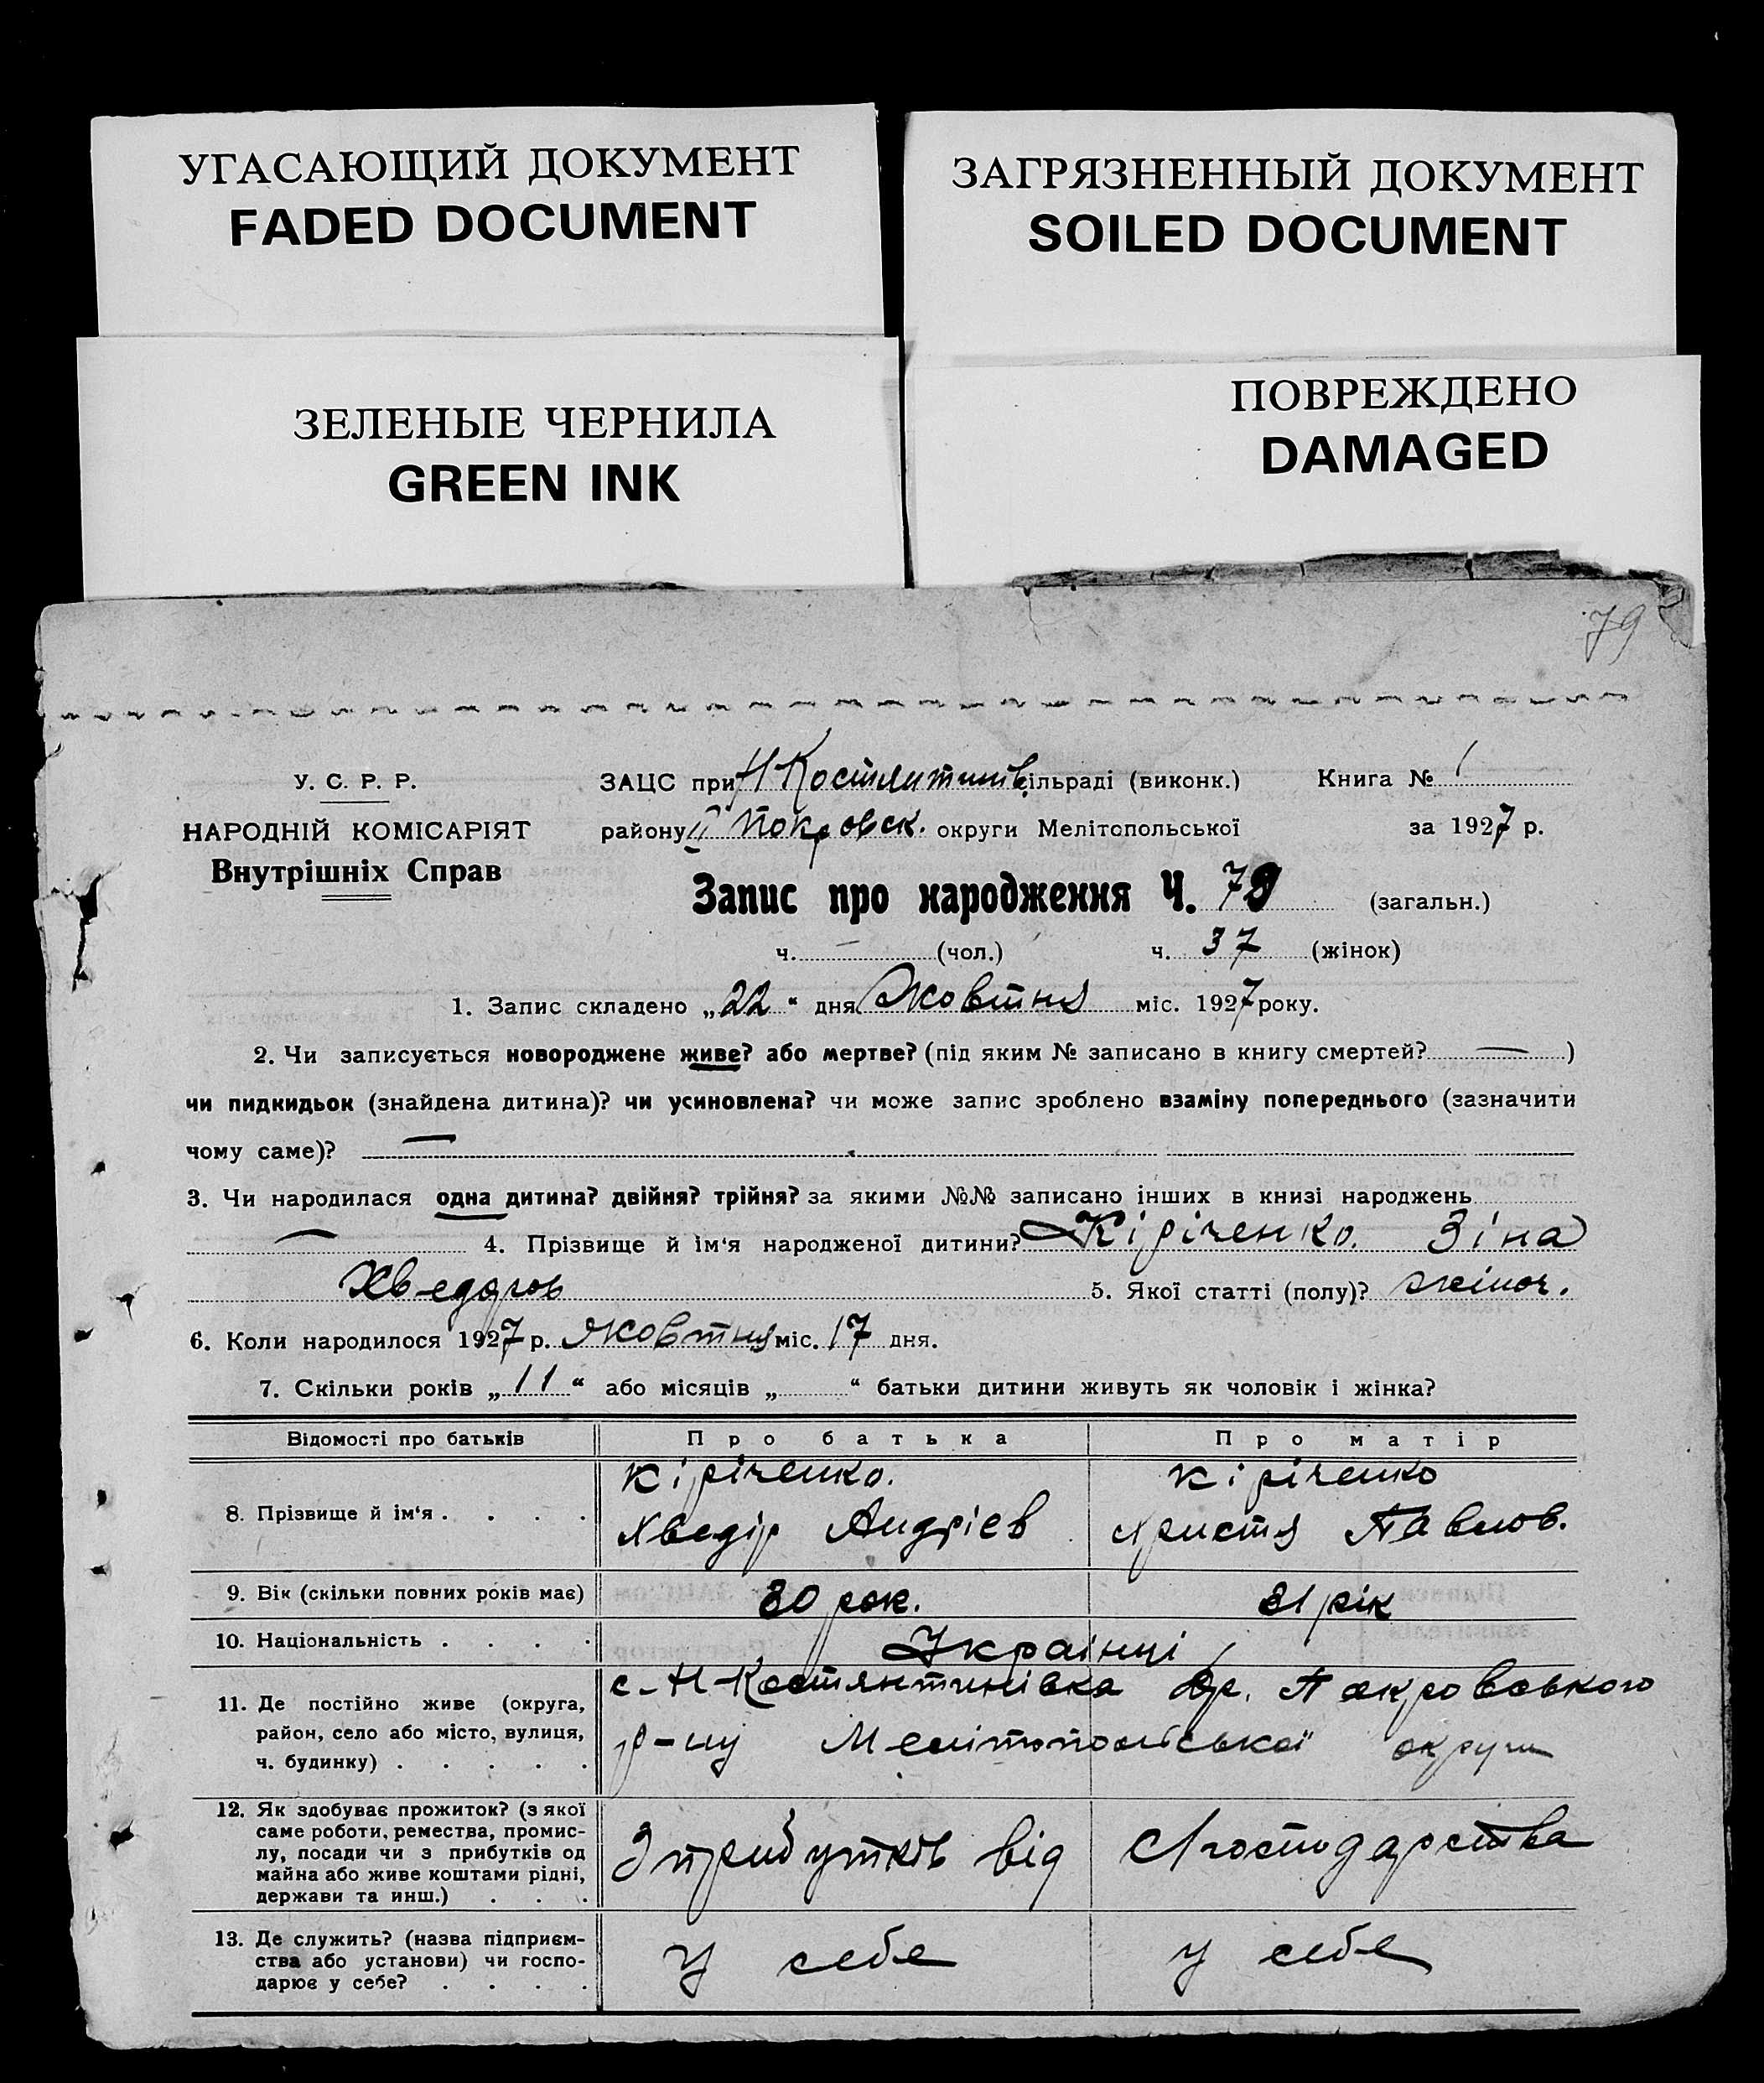 УГАСАЮЩИЙ ДОКУМЕНТ
FADED DOCUMENT
ЗАГРЯЗНЕННЫЙ ДОКУМЕНТ
SOILED DOCUMENT
ЗЕЛЕНЫЕ ЧЕРНИЛА
GREEN INK
ПОВРЕЖДЕНО
DAMAGED
79
У. С. Р. Р.
НАРОДНІЙ КОМІСАРІЯТ
Внутрішніх Справ
ЗАЦС при Н Костянтинів ільраді (виконк.) Книга № 1
району Покровск. округи Мелітопольської за 1927 р.
Запис про народження Ч. (загальн.)
ч. — (чол.) ч. 37 (жінок)
1. Запис складено „22“ дня Жовтня міс. 1927 року.
2. Чи записується новороджене живе? або мертве? (під яким № записано в книгу смертей? — )
чи пидкидьок (знайдена дитина)? чи усиновлена? чи може запис зроблено взаміну попереднього (зазначити
чому саме)? —
3. Чи народилася одна дитина? двійня? трійня? за якими №№ записано інших в книзі народжень
— 4. Прізвище й ім‘я народженої дитини? Кіріченко. Зіна
Хведоров 5. Якої статті (полу)? жіноч.
6. Коли народилося 1927 р. Жовтня міс. 17 дня.
7. Скільки років „11“ або місяців „ “ батьки дитини живуть як чоловік і жінка?
Відомості про батьків Про батька Про матір
8. Прізвище й ім‘я . . . . Кіріченко. Хведір Андрієв Кіріченко Христя Павлов.
9. Вік (скільки повних років має) 30 рок. 31 рік
10. Національність . . . . Українці
11. Де постійно живе (округа, район, село або місто, вулиця, ч. будинку) . . . . .
с. Н-Костянтинівка Покровського
р-ну Мелітопольської округи
12. Як здобуває прожиток? (з якої саме роботи, ремества, промис-
лу, посади чи з прибутків од
майна або живе коштами рідні,
держави та инш.) . . .
З прибутків від Господарства
13. Де служить? (назва підприєм-
ства або установи) чи госпо-
дарює у себе? . . . .
у себе у себе